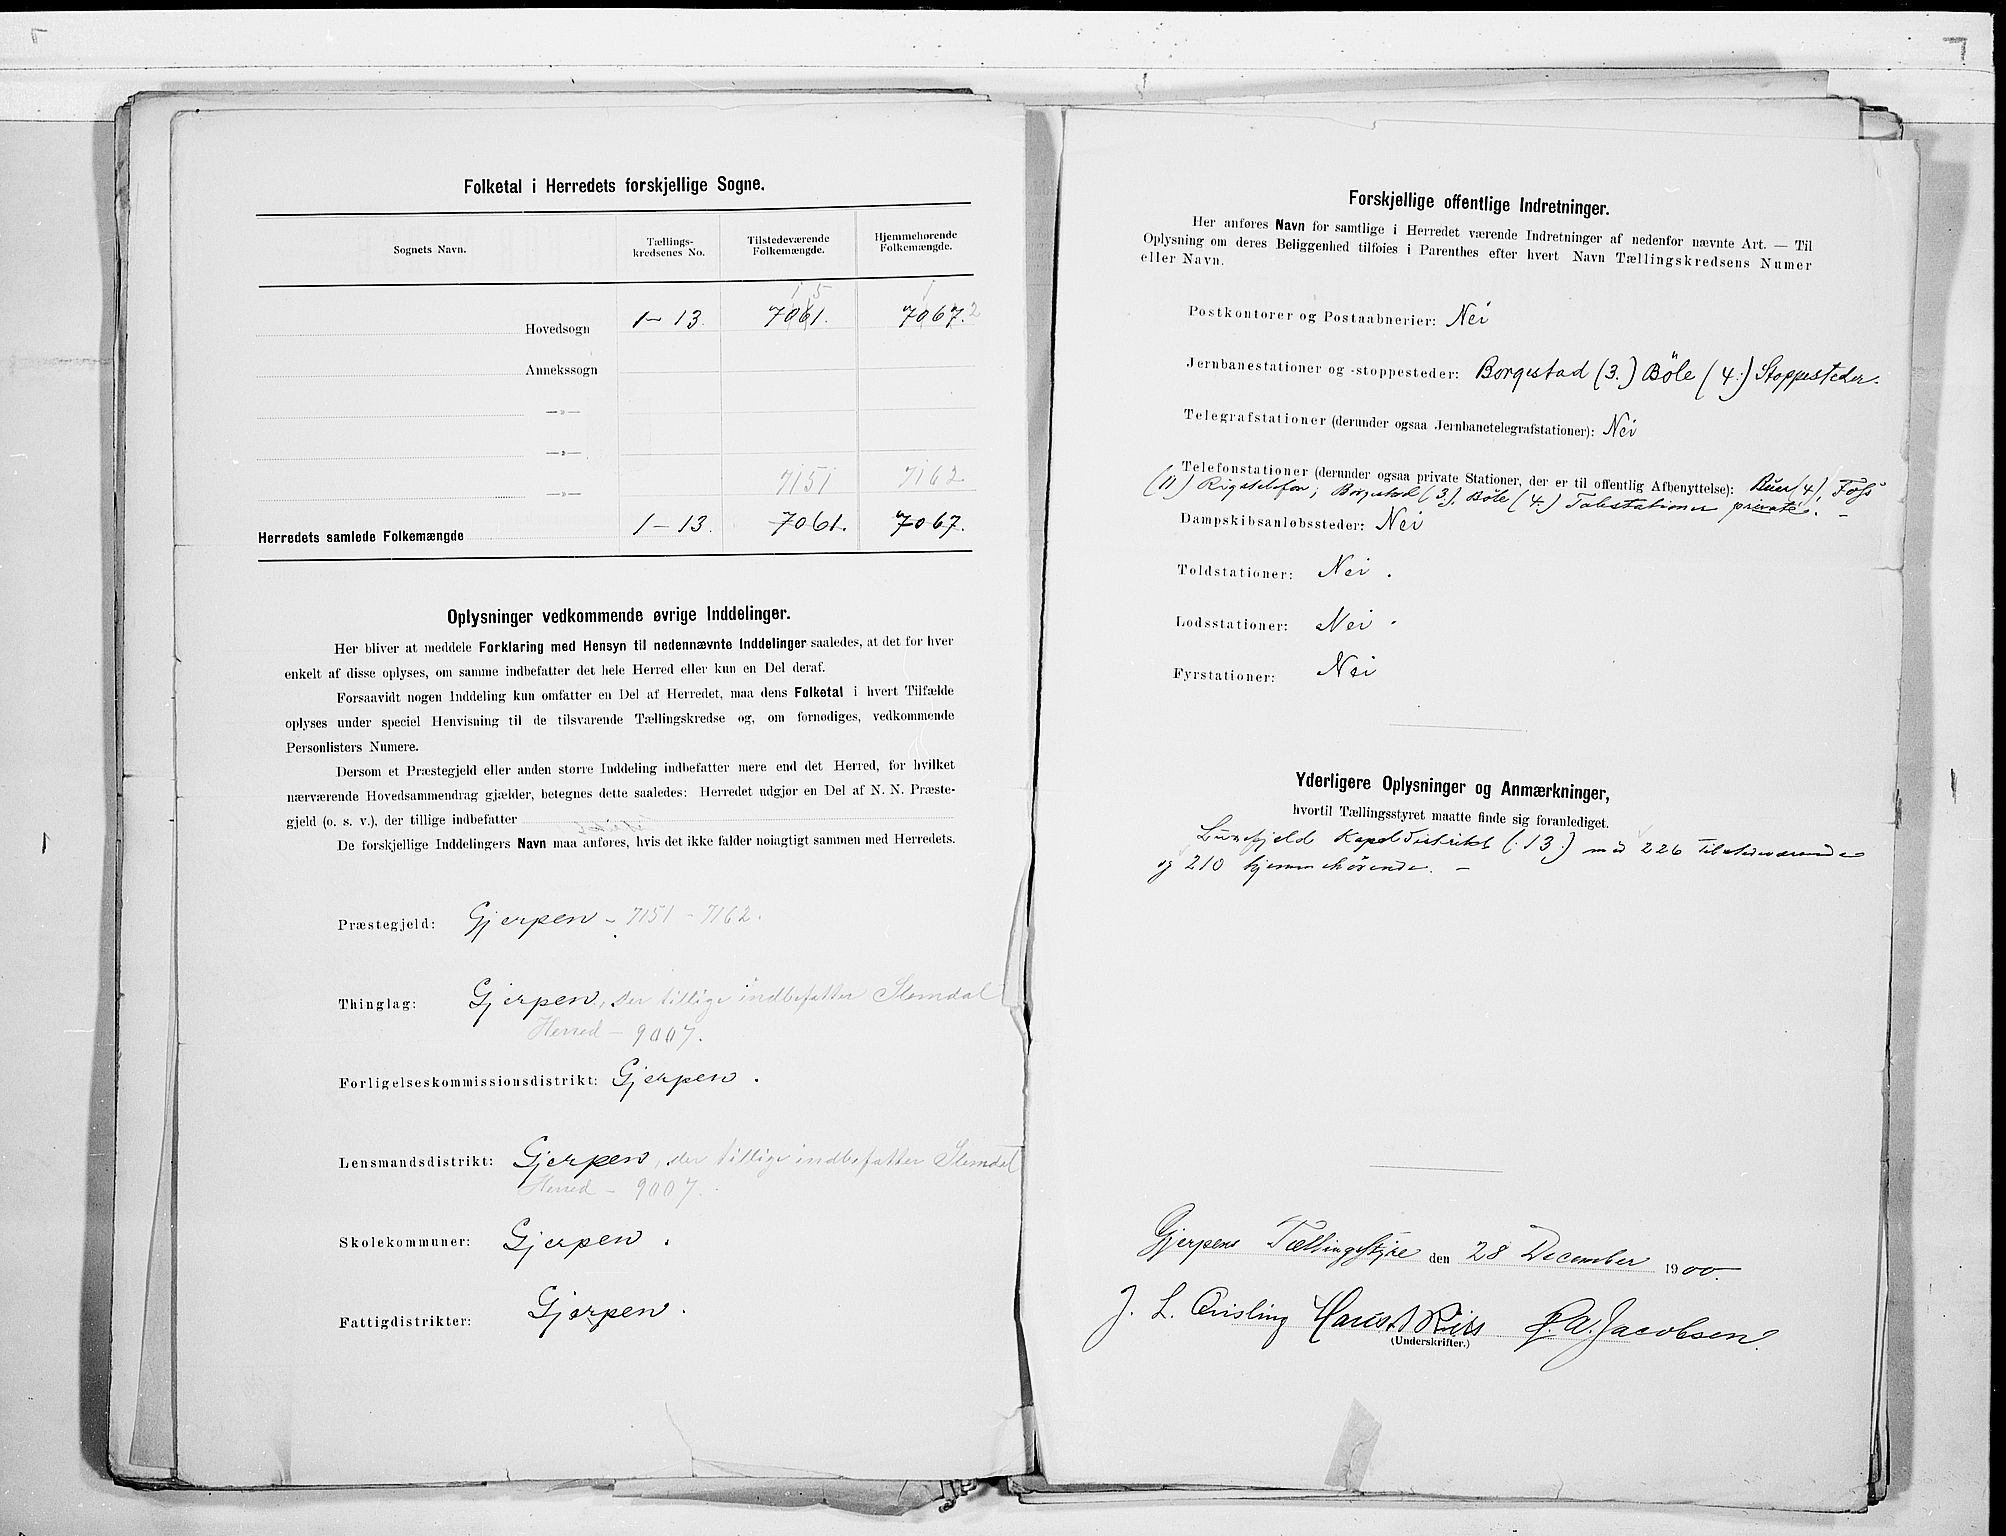 Folketal i Herredets forskjellige Sogne.
Sognets Navn. Tællings-kredsenes No. Tilstedeværende Folkemængde. Hjemmehørende Folkemængde.
1 5 1
Hovedsogn 1-13. 7061. 7067. 2
Annekssogn
—»—
—»—
—»— 7151 7162
Herredets samlede Folkemængde 1-13. 7061. 7067.
Oplysninger vedkommende øvrige Inddelinger.
Her bliver at meddele Forklaring med Hensyn til nedennævnte Inddelinger saaledes, at det for hver
enkelt af disse oplyses, om samme indbefatter det hele Herred eller kun en Del deraf.
Forsaavidt nogen Inddeling kun omfatter en Del af Herredet, maa dens Folketal i hvert Tilfælde
oplyses under speciel Henvisning til de tilsvarende Tællingskredse og, om fornødiges, vedkommende
Personlisters Numere.
Dersom et Præstegjeld eller anden større Inddeling indbefatter mere end det Herred, for hvilket
nærværende Hovedsammendrag gjælder, betegnes dette saaledes: Herredet udgjør en Del af N. N. Præste-
gjeld (o. s. v.), der tillige indbefatter
De forskjellige Inddelingers Navn maa anføres, hvis det ikke falder nøiagtigt sammen med Herredets.
Præstegjeld: Gjerpen - 7151 - 7162.
Thinglag: Gjerpen, der tillige indbefatter Slemdal
Herred - 9007.
Forligelseskommissionsdistrikt: Gjerpen.
Lensmandsdistrikt: Gjerpen, der tillige indbefatter Slemdal
Herred - 9007.
Skolekommuner: Gjerpen.
Fattigdistrikter: Gjerpen.
Forskjellige offentlige Indretninger.
Her anføres Navn for samtlige i Herredet værende Indretninger af nedenfor nævnte Art. — Til
Oplysning om deres Beliggenhed tilføies i Parenthes efter hvert Navn Tællingskredsens Numer
eller Navn.
Postkontorer og Postaabnerier: Nei
Jernbanestationer og -stoppesteder: Borgestad (3.) Böle (4.) Stoppesteder.
Telegrafstationer (derunder ogsaa Jernbanetelegrafstationer): Nei
Telefonstationer (derunder ogsaa private Stationer, der er til offentlig Afbenyttelse): Buer (4), Foss
(11) Rigstelefon; Borgestad (3), Böle (4.) Talestationer private. -
Dampskibsanløbssteder: Nei
Toldstationer: Nei.
Lodsstationer: Nei.
Fyrstationer: Nei
Yderligere Oplysninger og Anmærkninger,
hvortil Tællingsstyret maatte finde sig foranlediget.
Luxefjeld Kapeldistrikt (13.) med 226 Tilstedeværende
og 210 hjemmehørende. -
Gjerpens Tællingsstyre den 28 December 1900.
J. L. Qvisling Hans Riis P. A. Jacobsen.
(Underskrifter.)